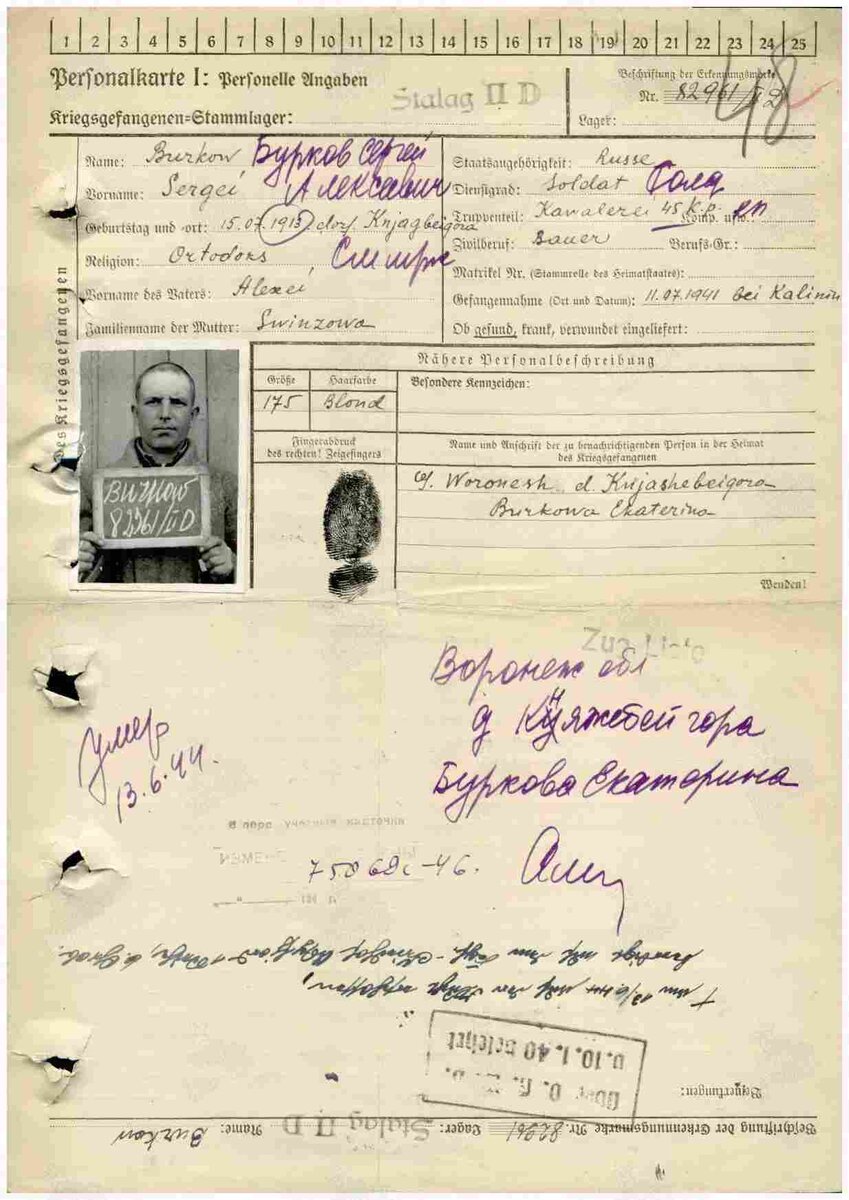 1 2 3 4 5 6 7 8 9 10 11 12 13 14 15 16 17 18 19 20 21 22 23 24 25
Personalkarte I: Personelle Angaben
Kriegsgefangenen-Stammlager: Stalag II D
Beschriftung der Erkennungsmarke
Nr. 82961/II D
Lager:
48
Des Kriegsgefangenen
Name: Burkow Бурков Сергей
Vorname: Sergei Алексеевич
Geburtstag und -ort: 15.07.1913 dorf Knjagbeigora
Religion: Ortodoks
Vorname des Vaters: Alexei
Familienname der Mutter: Swinzowa
Staatsangehörigkeit: Russe
Dienstgrad: Soldat Солд
Truppenteil: Kavalerei 45 к.р. Komp. usw.:
Zivilberuf: Bauer Berufs-Gr.:
Matrikel Nr. (Stammrolle des Heimatstaates):
Gefangennahme (Ort und Datum): 11.07.1941 bei Kalinin
Ob gesund, krank, verwundet eingeliefert:
Burkow
82961/II D
Nähere Personalbeschreibung
Größe Haarfarbe Besondere Kennzeichen:
175 Blond
Fingerabdruck
des rechten! Zeigefingers
Name und Anschrift der zu benachrichtigenden Person in der Heimat
des Kriegsgefangenen
Woronesh d. Knjashebeigora
Burkowa Ekaterina
Wenden!
Воронеж обл
д Княжебей гора
Буркова Екатерина
умер
13.6.44.
-46.
Bemerkungen:
u. 10.1.40 beleirt
Beschriftung der Erkennungsmarke Nr. 82961 Lager: Stalag II D Name: Burkow